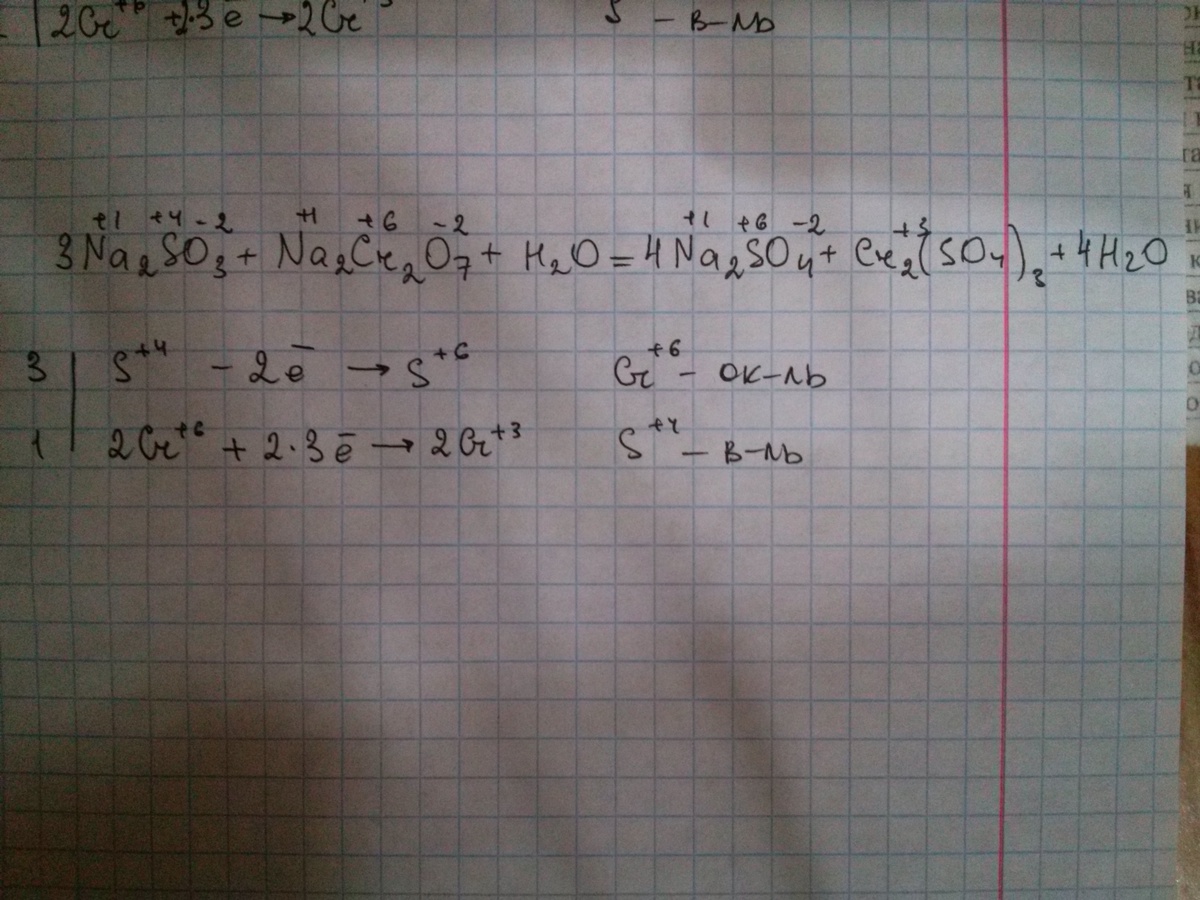 2Cr⁺⁶ + 2·3ē → 2Cr S – в-ль
3Na₂⁺¹S⁺⁴O₃⁻² + Na₂⁺¹Cr₂⁺⁶O₇⁻² + H₂O = 4Na₂⁺¹S⁺⁶O₄⁻² + Cr₂⁺³(SO₄)₃ + 4H₂O
3 | S⁺⁴ – 2ē → S⁺⁶ Cr⁺⁶ – ок-ль
1 | 2Cr⁺⁶ + 2·3ē → 2Cr⁺³ S⁺⁴ – в-ль